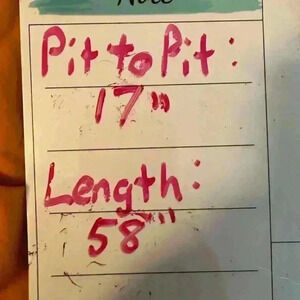 Note
Pit to Pit:
17"
Length:
58"